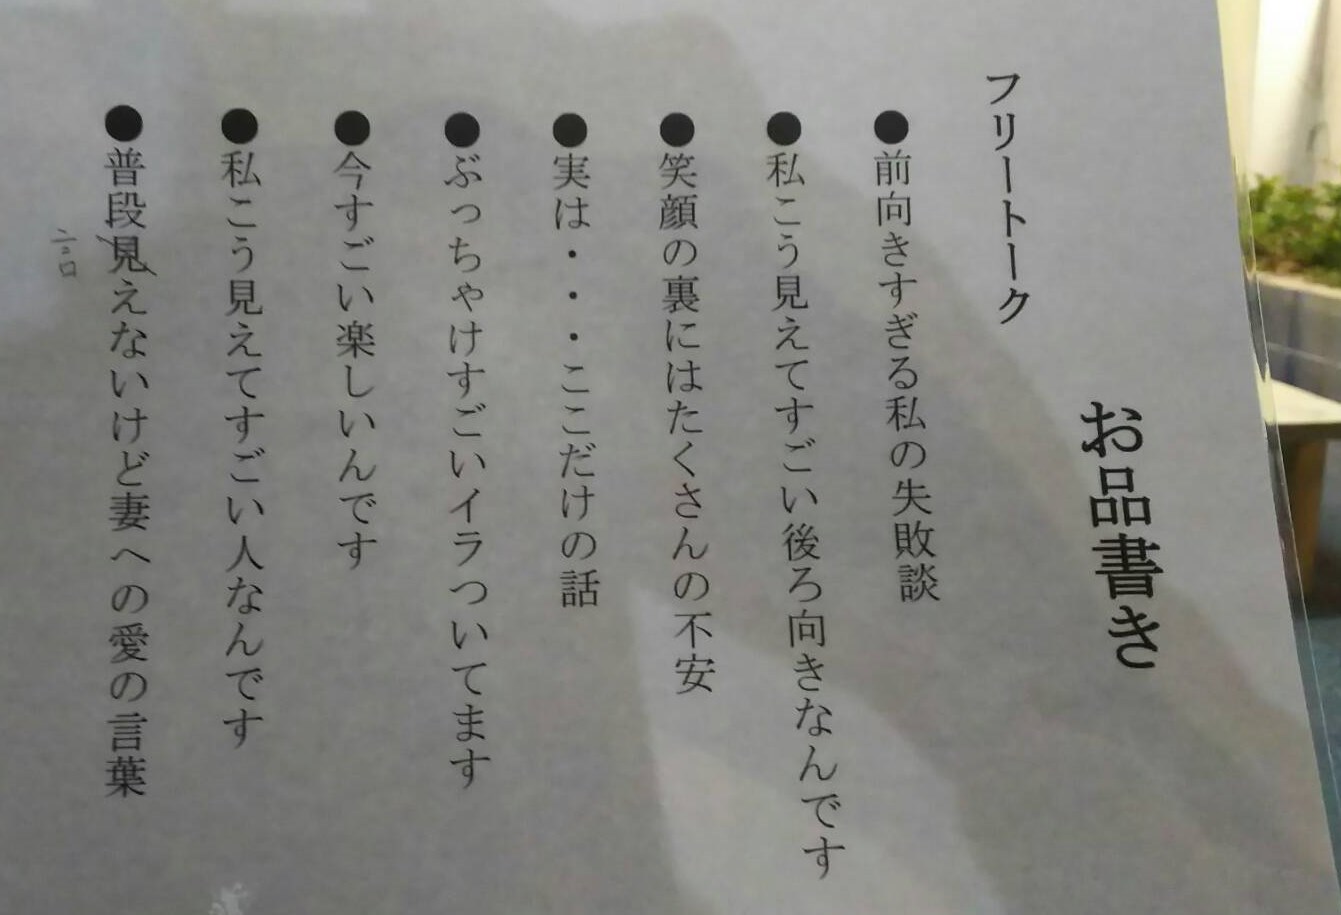 お品書き
フリートーク
●前向きすぎる私の失敗談
●私こう見えてすごい後ろ向きなんです
●笑顔の裏にはたくさんの不安
●実は・・・ここだけの話
●ぶっちゃけすごいイラついてます
●今すごい楽しいんです
●私こう見えてすごい人なんです
●普段見えないけど妻への愛の言葉
言